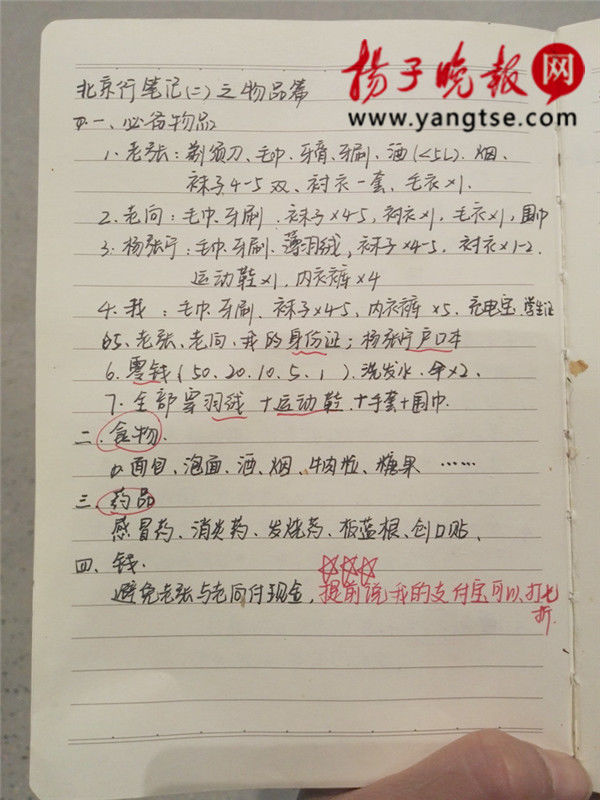 扬子晚报网
www.yangtse.com
北京行笔记(二)之物品篇
一、必备物品
1.老张：剃须刀、毛巾、牙膏、牙刷、酒(<5L)、烟、
袜子4-5双、衬衣一套、毛衣×1.
2.老向：毛巾、牙刷、袜子×4-5,衬衣×1,毛衣×1,围巾
3.杨张宁：毛巾、牙刷、薄羽绒,袜子×4-5、衬衣×1-2.
运动鞋×1,内衣裤×4
4.我：毛巾、牙刷、袜子×4-5,内衣裤×5.充电宝、学生证
5、老张、老向、我的身份证；杨张宁户口本
6.零钱(50、20、10、5、1)、洗发水、伞×2、
7.全部穿羽绒+运动鞋+手套+围巾.
二、食物.
面包、泡面、酒、烟、牛肉粒、糖果、……
三、药品
感冒药、消炎药、发烧药、板蓝根、创口贴、
四、钱.
避免老张与老向付现金,提前说我的支付宝可以打七
折.